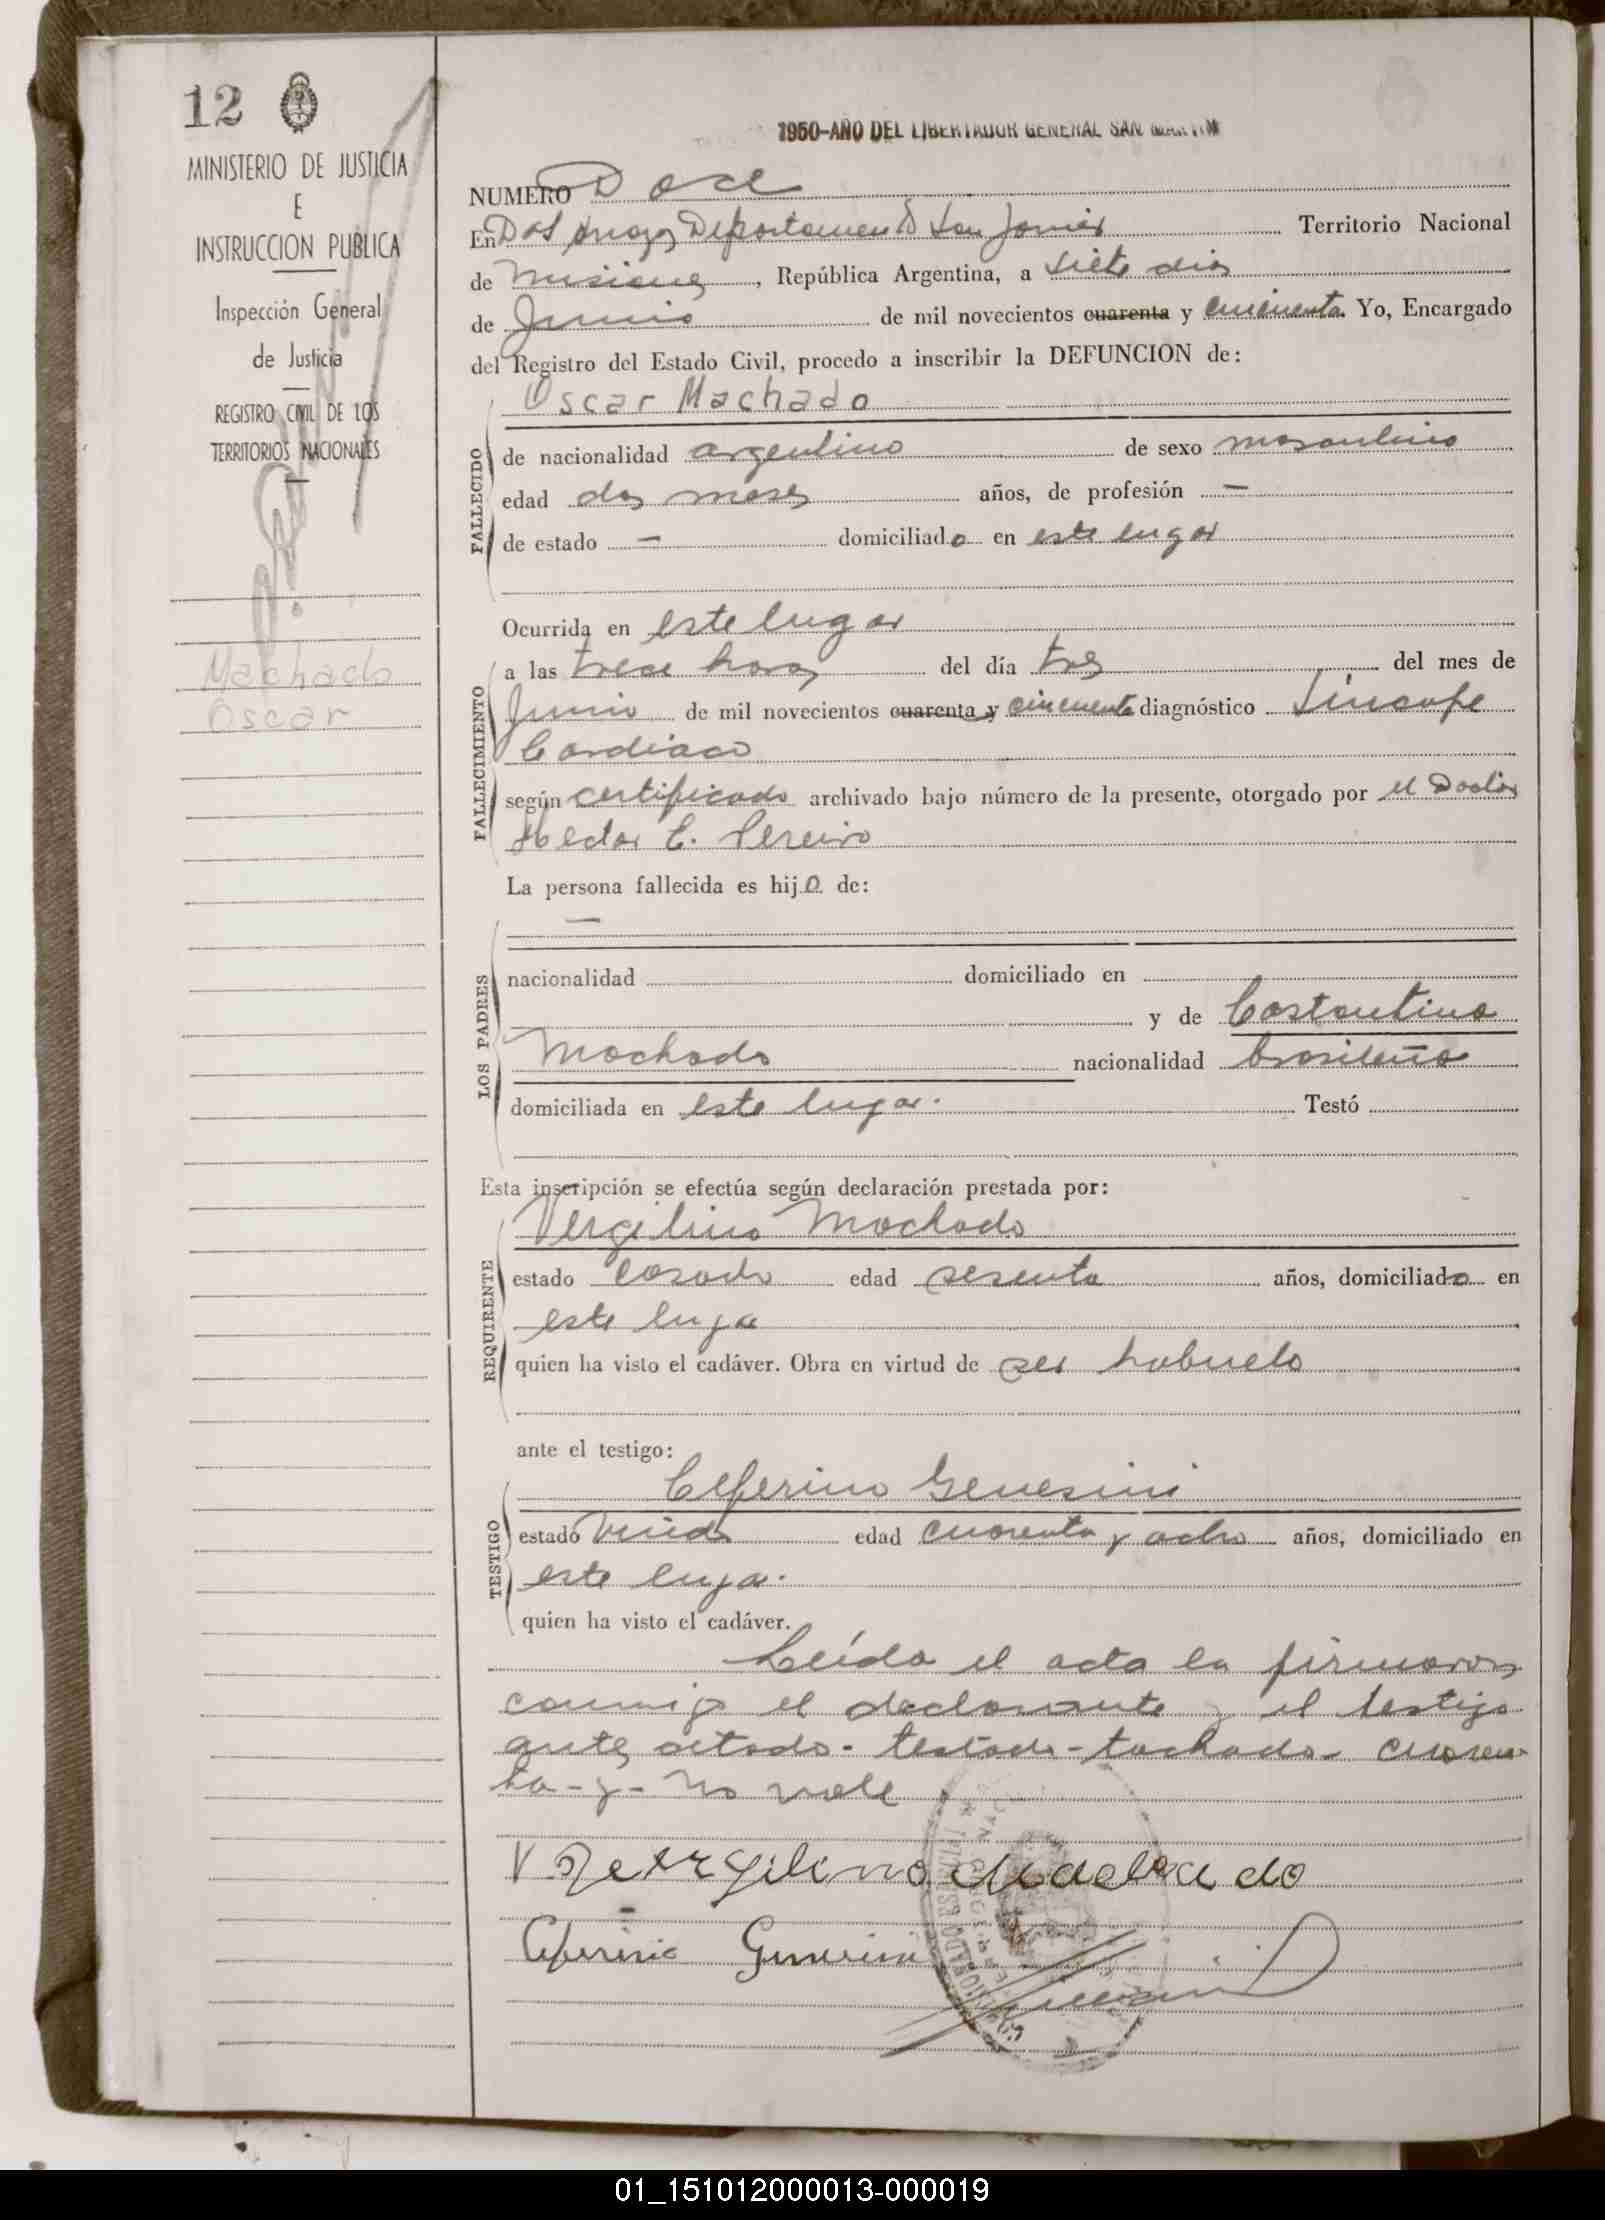 12
MINISTERIO DE JUSTICIA
E
INSTRUCCION PUBLICA
Inspección General
de Justicia
REGISTRO CIVIL DE LOS
TERRITORIOS NACIONALES
Machado
Oscar
1950-AÑO DEL LIBERTADOR GENERAL SAN MARTIN
NUMERO Doce
En Dos Arroyos Departamento San Javier Territorio Nacional
de Misiones, República Argentina, a siete dias
de Junio de mil novecientos cuarenta y cincuenta. Yo, Encargado
del Registro del Estado Civil, procedo a inscribir la DEFUNCION de:
Oscar Machado
FALLECIDO
de nacionalidad argentino de sexo masculino
edad dos meses años, de profesión —
de estado — domiciliado en este lugar
Ocurrida en este lugar
FALLECIMIENTO
a las trece horas del día tres del mes de
Junio de mil novecientos cuarenta y cincuenta diagnóstico Sincope
Cardiaco
según certificado archivado bajo número de la presente, otorgado por el Doctor
Hector C. Pereiro
La persona fallecida es hijo de:
—
LOS PADRES
nacionalidad domiciliado en
y de Costantina
Machado nacionalidad brasileña
domiciliada en este lugar. Testó
Esta inscripción se efectúa según declaración prestada por:
Vergilino Machado
REQUIRENTE
estado casado edad sesenta años, domiciliado en
este lugar
quien ha visto el cadáver. Obra en virtud de ser habuelo
ante el testigo:
Ceferino Genesini
TESTIGO
estado viudo edad cuarenta y ocho años, domiciliado en
este lugar.
quien ha visto el cadáver.
Leída el acta la firmaron
conmigo el declarante y el testigo
antes citado - testado - tachado - cuaren
ta - y - no vale
Ceferino Genesini
01_151012000013-000019